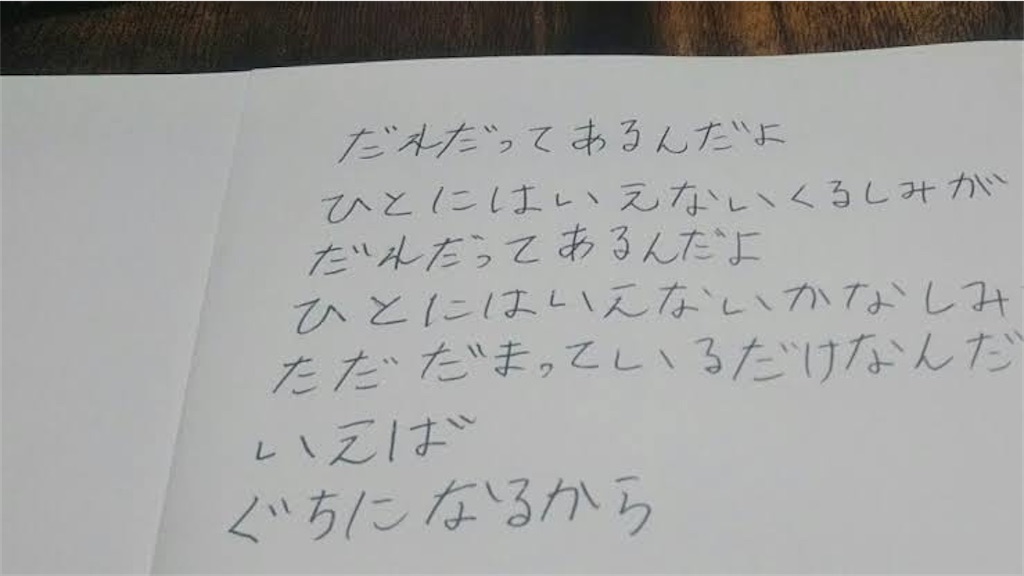 だれだってあるんだよ
ひとにはいえないくるしみが
だれだってあるんだよ
ひとにはいえないかなしみ
ただだまっているだけなんだ
いえば
ぐちになるから